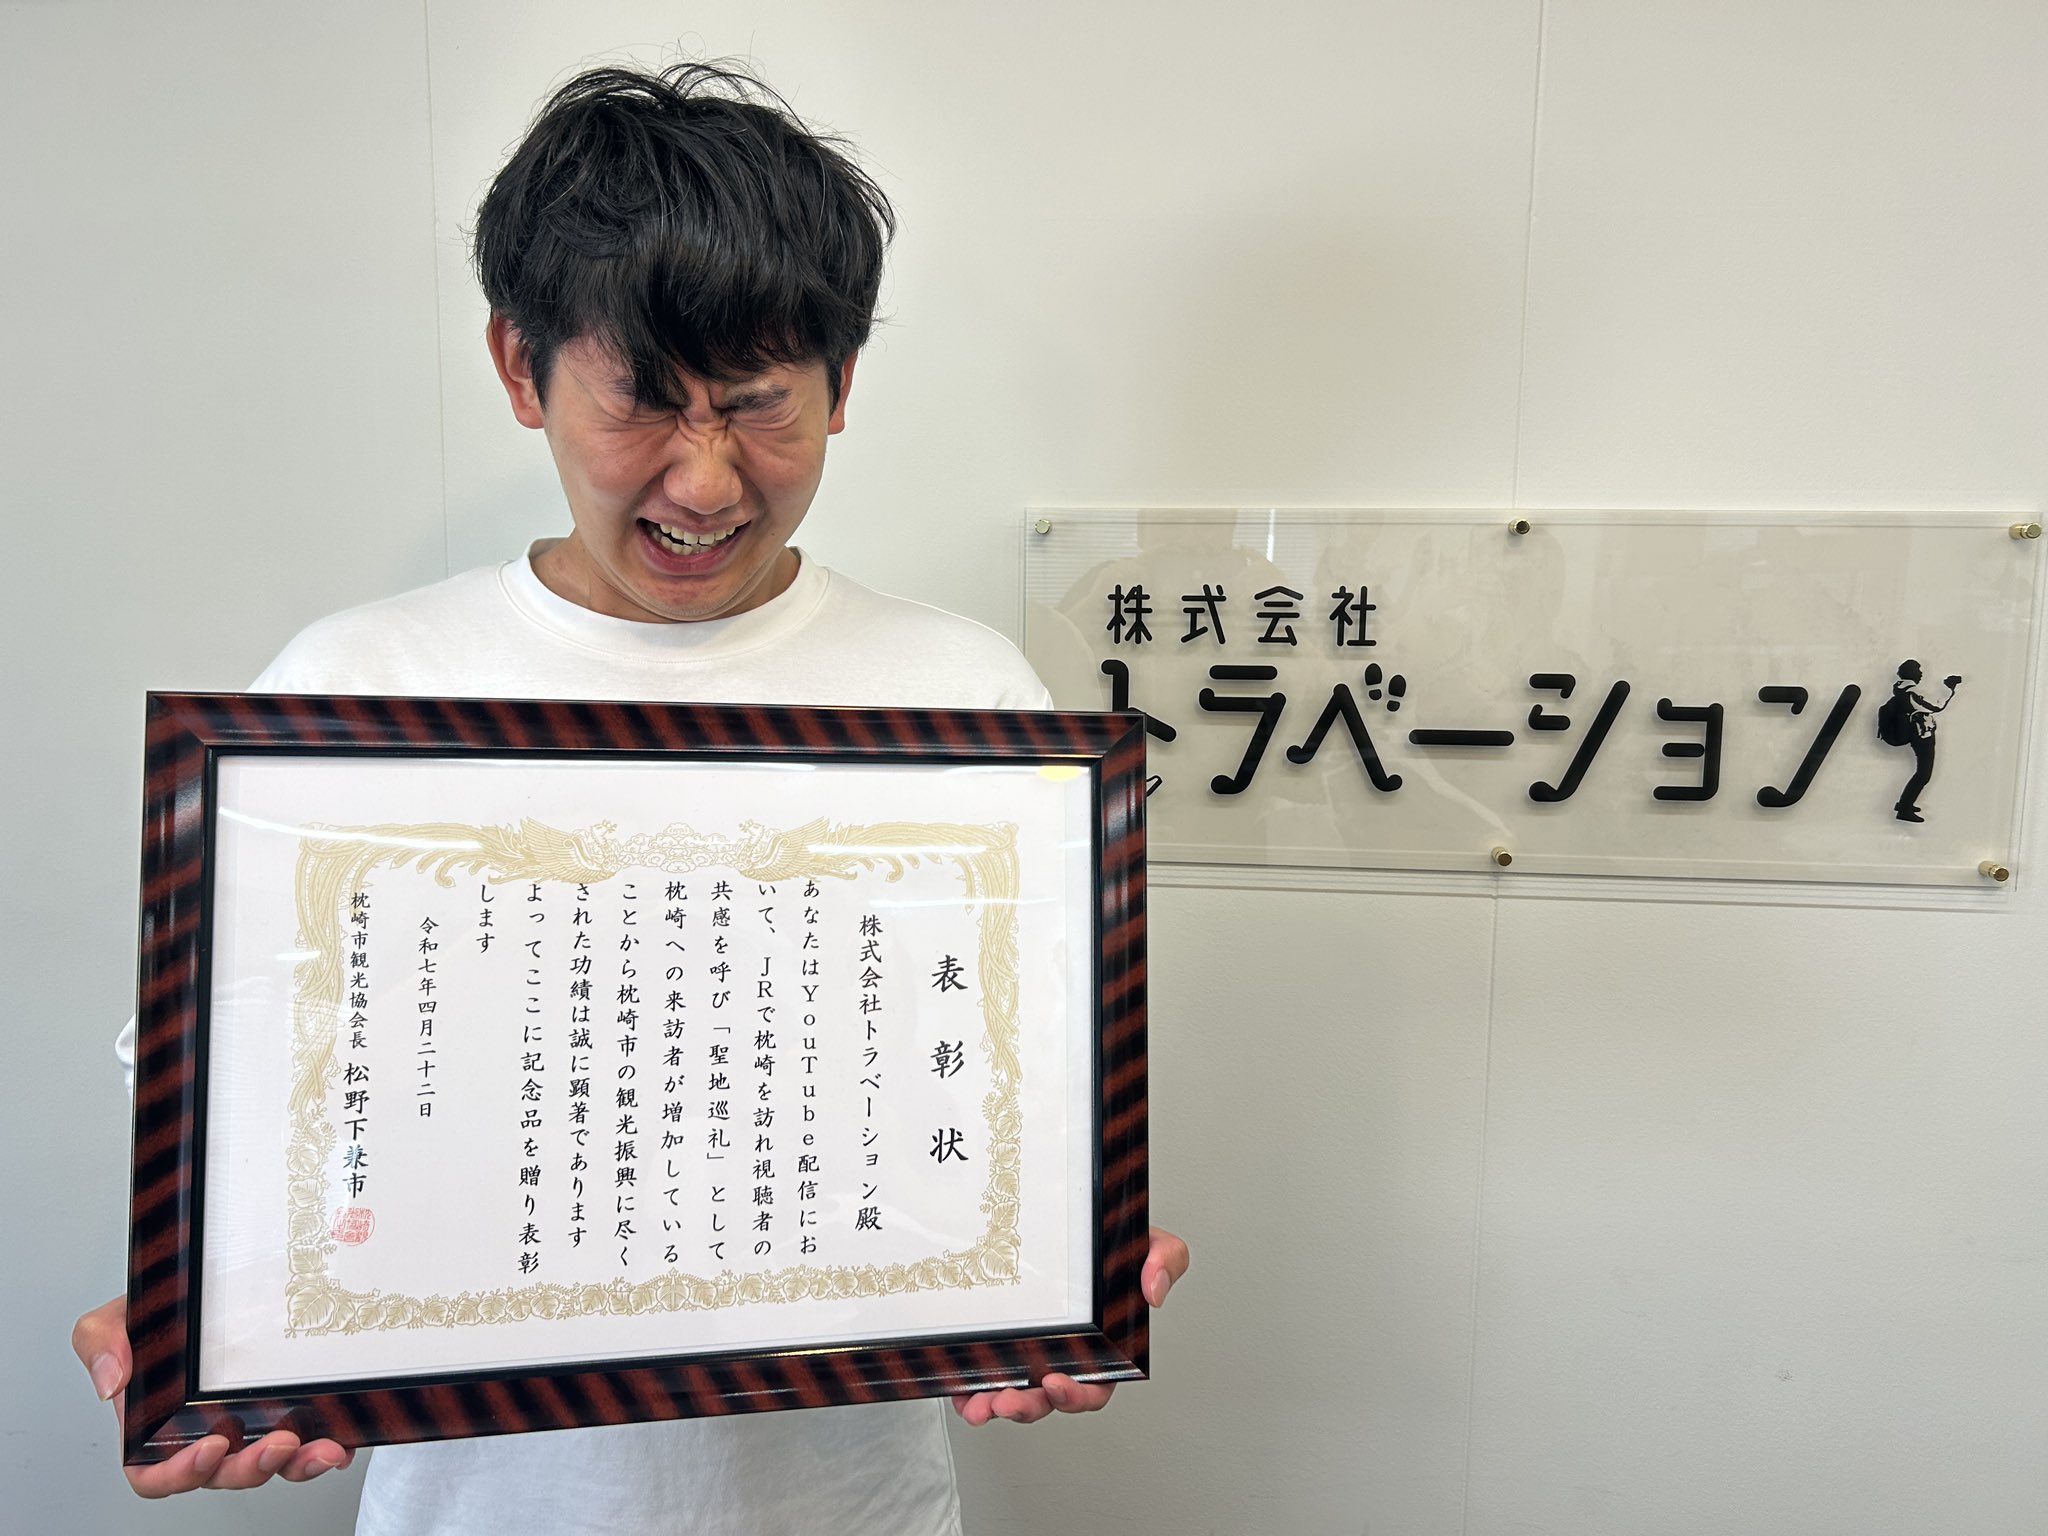 表彰状
株式会社トラベーション殿
あなたはYouTube配信にお
いて、JRで枕崎を訪れ視聴者の
共感を呼び「聖地巡礼」として
枕崎への来訪者が増加している
ことから枕崎市の観光振興に尽く
された功績は誠に顕著であります
よってここに記念品を贈り表彰
します
令和七年四月二十二日
枕崎市観光協会長 松野下兼市
株式会社
トラベーション